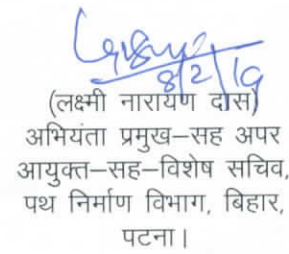 8/2/19
(लक्ष्मी नारायण दास)
अभियंता प्रमुख–सह अपर
आयुक्त–सह–विशेष सचिव,
पथ निर्माण विभाग, बिहार,
पटना।